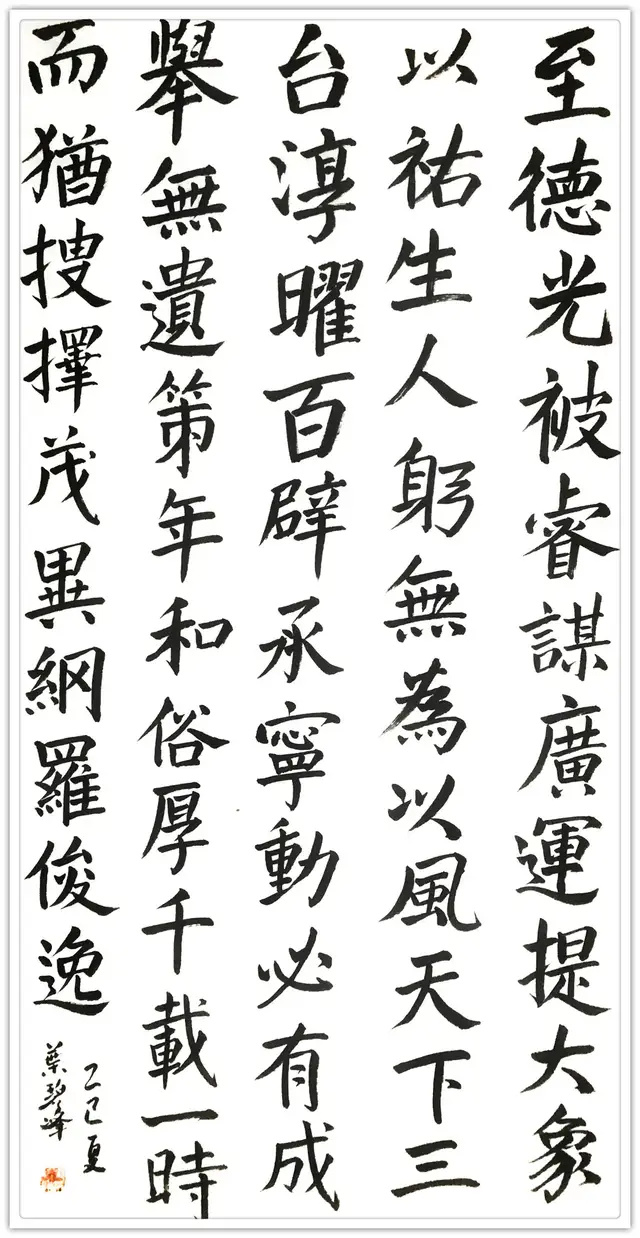 至德光被睿謀廣運提大象
以祐生人躬無為以風天下三
台淳曜百辟承寧動必有成
舉無遺策年和俗厚千載一時
而猶搜擇茂異網羅俊逸
乙巳夏
葉碧峰